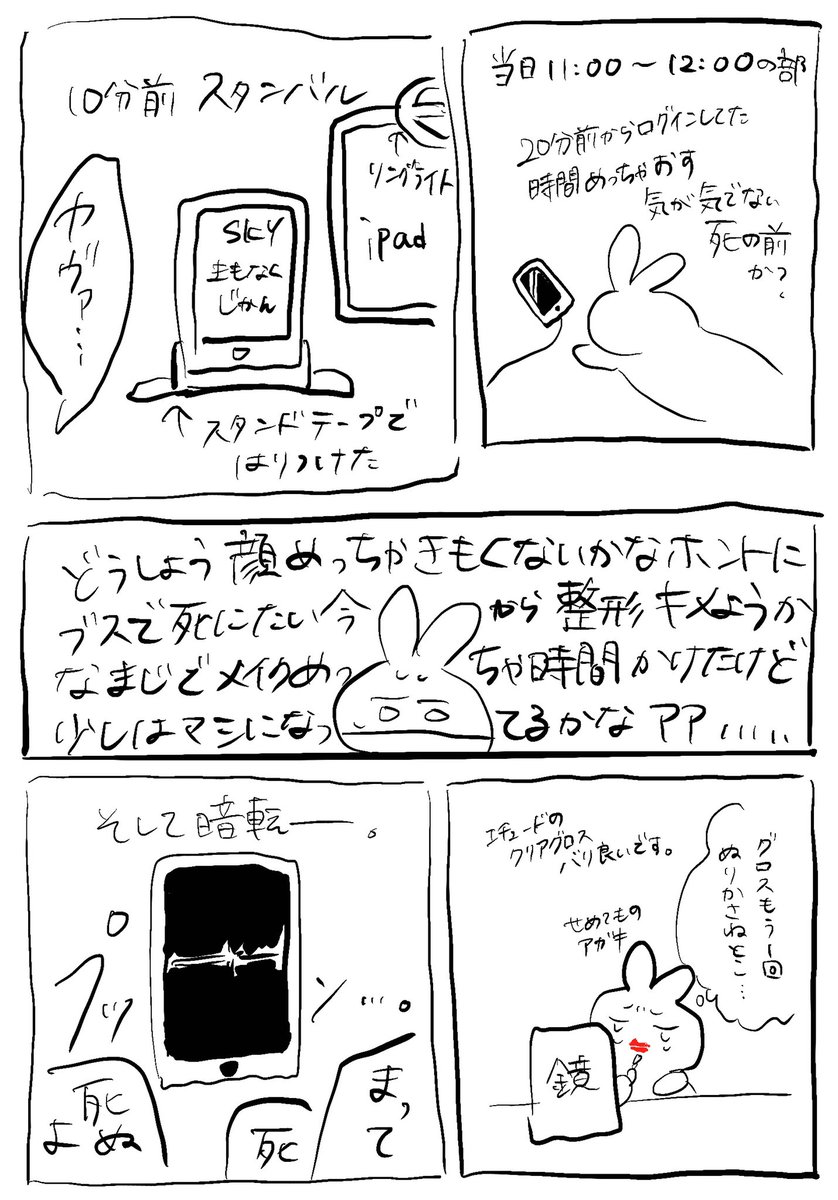 当日11:00〜12:00の部
20分前からログインしてた
時間めっちゃおす
気が気でない
死の前
かつ
10分前 スタンバル
リングライト
ipad
SKY
まもなく
じかん
ヤヴァ…
スタンドテープで
はりつけた
どうしよう顔めっちゃきもくないかなホントに
ブスで死にたい今から整形キメようか
なまじでメイクめっちゃ時間かけたけど
少しはマシになってるかなアア……
グロスもう1回
ぬりかさねとこ…
エチュードの
クリアグロス
バリ良いです。
せめてもの
アガキ
鏡
そして暗転ー。
プッン…。
まって
死
死ぬ
よ